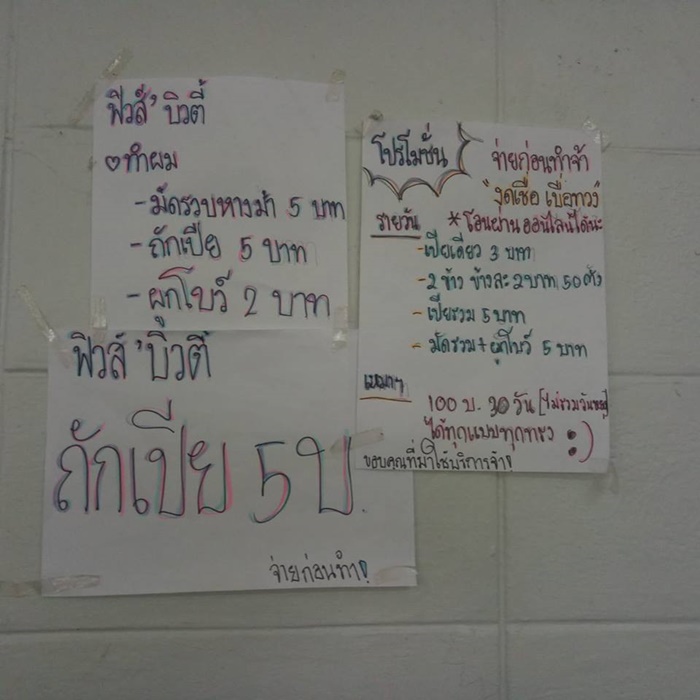 ฟิวส์'บิวตี้
ทำผม
-มัดรวบหางม้า 5 บาท
-ถักเปีย 5 บาท
-ผูกโบว์ 2 บาท
ฟิวส์'บิวตี้
ถักเปีย 5 บ.
จ่ายก่อนทำ!
โปรโมชั่น
จ่ายก่อนทำจ้า
"งดเชื่อ เบื่อทวง"
รายวัน *โอนผ่านออนไลน์ได้นะ
-เปียเดียว 3 บาท
-2 ข้าง ข้างละ 2 บาท 50 ตัง
-เปียรวม 5 บาท
- มัดรวม+ผูกโบว์ 5 บาท
เหมาๆ
100 บ. 30 วัน [ไม่รวมวันหยุด]
ได้ทุกแบบทุกทรง :)
ขอบคุณที่มาใช้บริการจ้า!